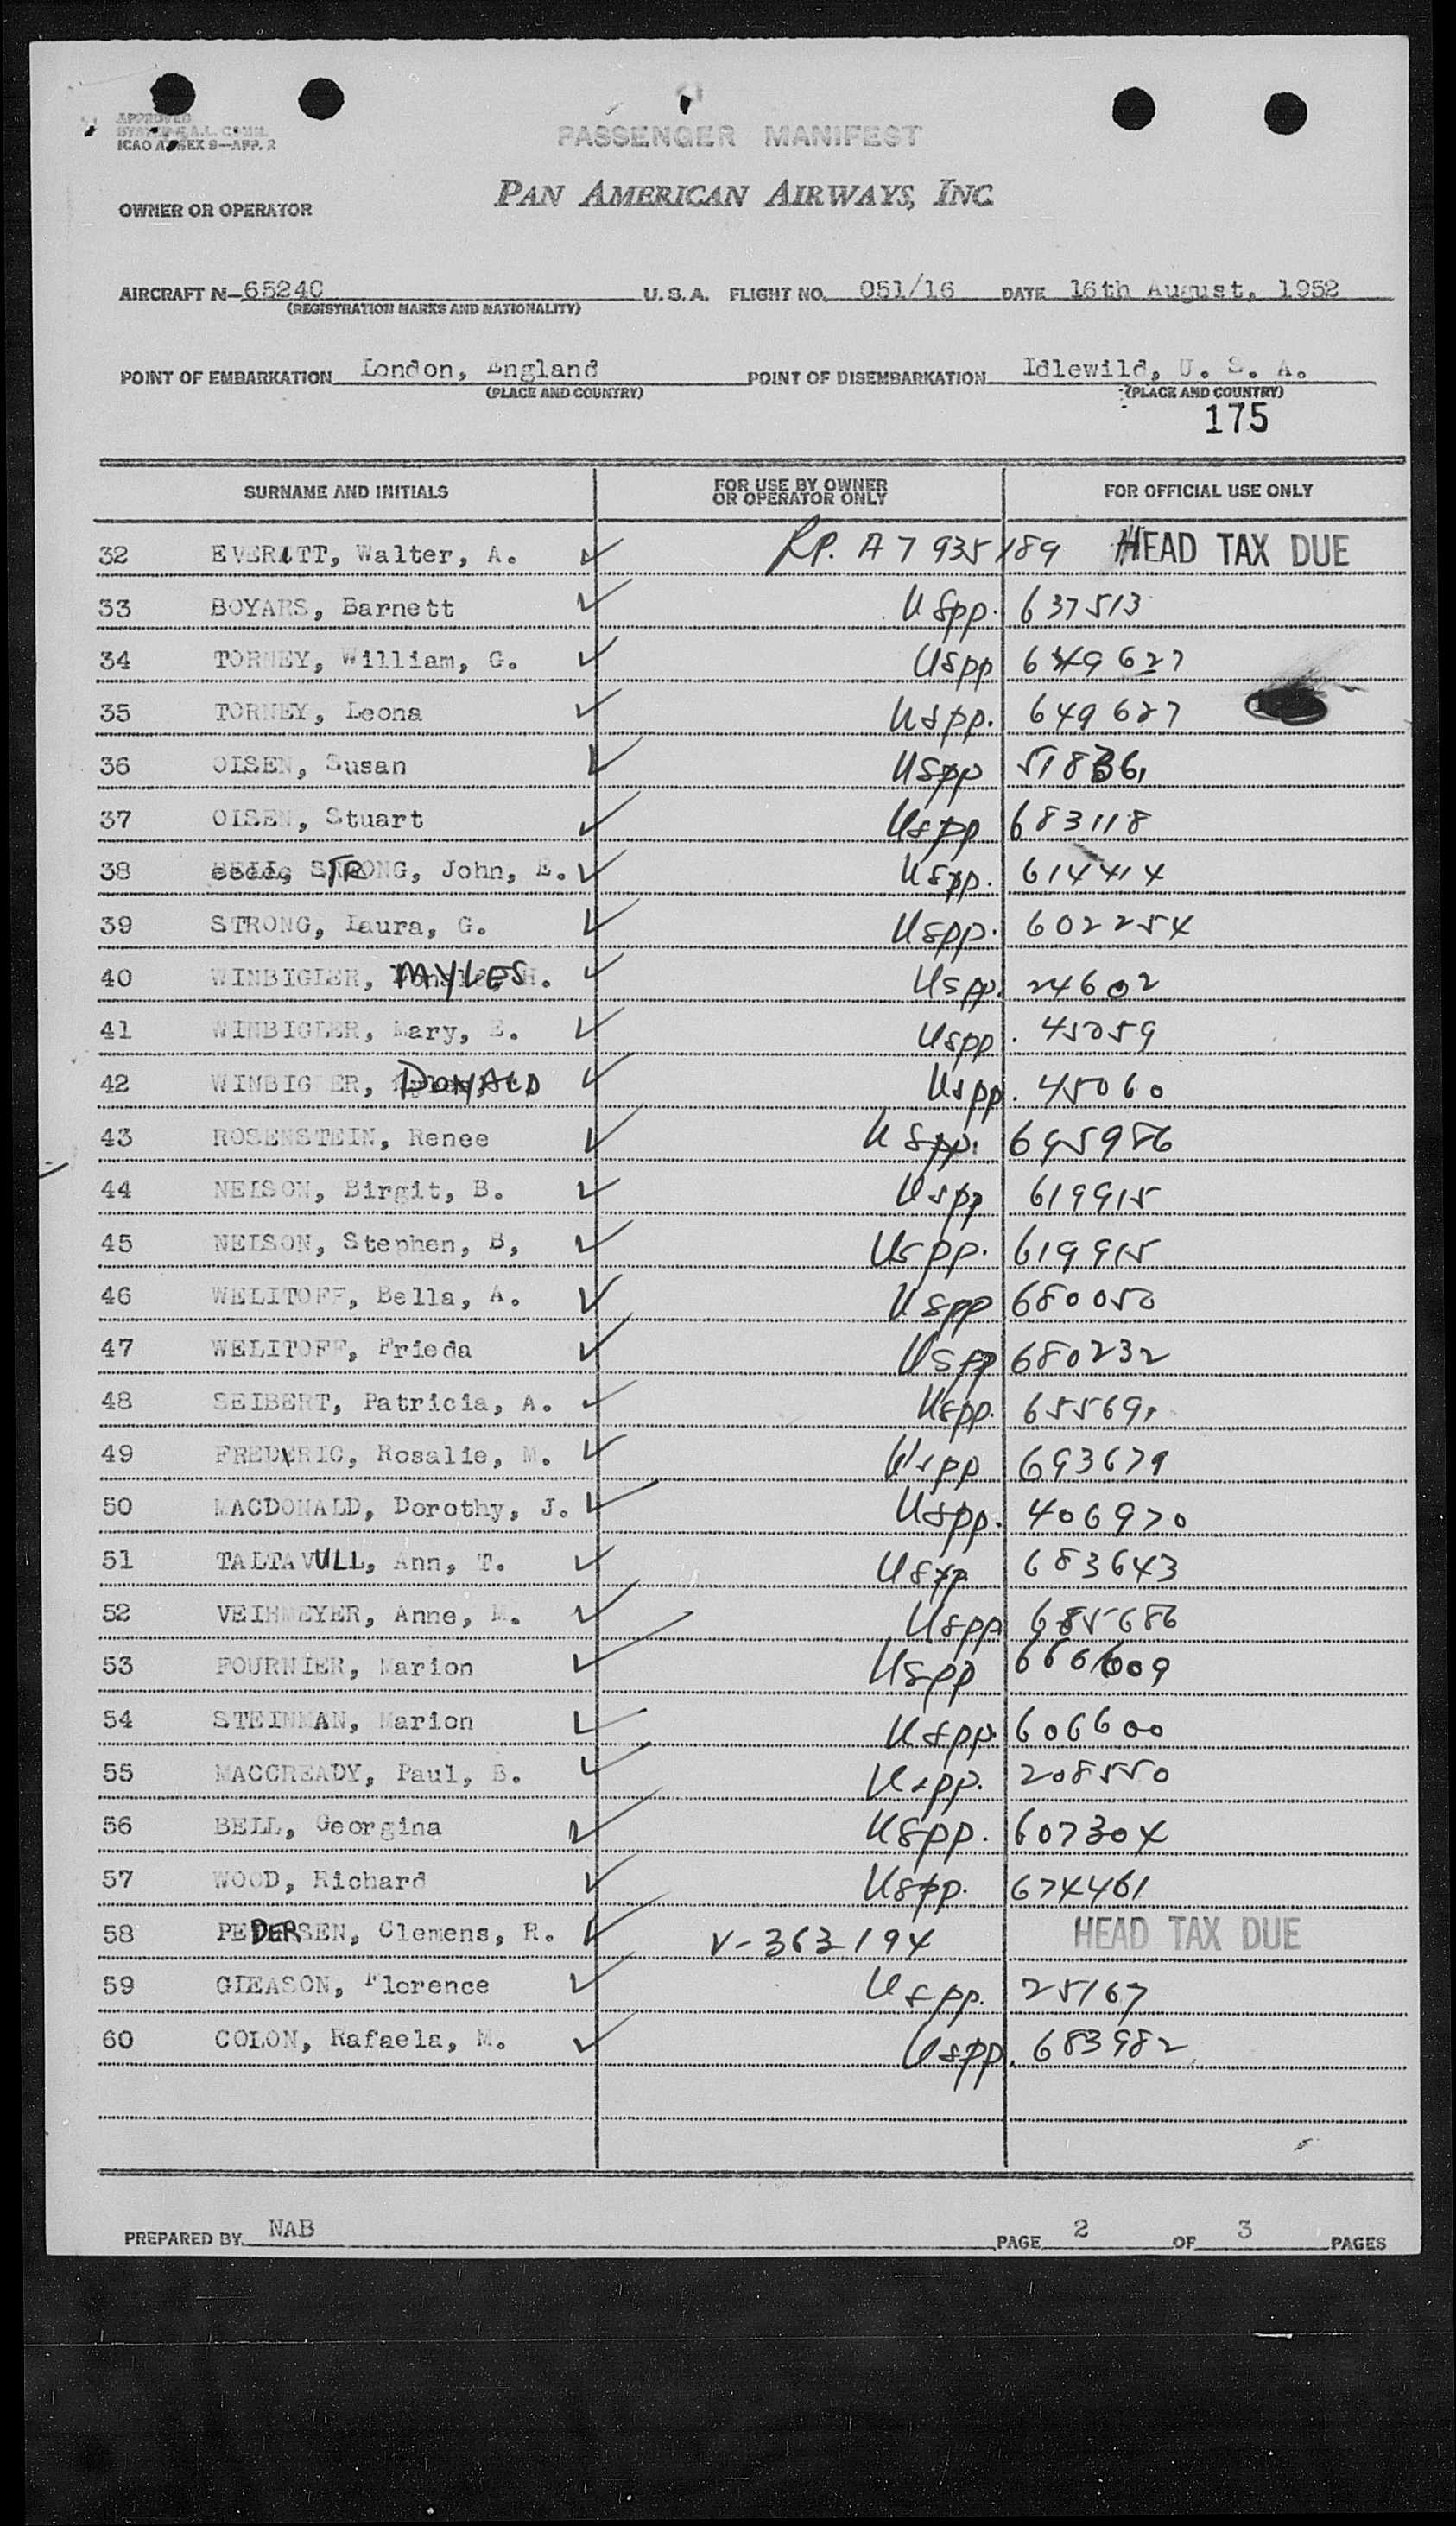 APPROVED
ICAO ANNEX 9—APP. 2
PASSENGER MANIFEST
PAN AMERICAN AIRWAYS, INC.
OWNER OR OPERATOR
AIRCRAFT N-6524C U.S.A. FLIGHT NO. 051/16 DATE 16th August, 1952
(REGISTRATION MARKS AND NATIONALITY)
POINT OF EMBARKATION London, England POINT OF DISEMBARKATION Idlewild, U. S. A.
(PLACE AND COUNTRY) (PLACE AND COUNTRY)
175
SURNAME AND INITIALS FOR USE BY OWNER OR OPERATOR ONLY FOR OFFICIAL USE ONLY
32 EVERITT, Walter, A. RP. A 7 935 189 HEAD TAX DUE
33 BOYARS, Barnett USpp. 637513
34 TORNEY, William, G. USpp 649627
35 TORNEY, Leona USpp. 649627
36 OLSEN, Susan USpp 51836,
37 OLSEN, Stuart USpp 683118
38 STRONG, John, E. USpp. 614414
39 STRONG, Laura, G. USpp. 602254
40 WINBIGLER, MYLES H. USpp. 24602
41 WINBIGLER, Mary, E. USpp. 45059
42 WINBIGLER, DONALD USpp. 45060
43 ROSENSTEIN, Renee USpp. 695986
44 NELSON, Birgit, B. USpp 619915
45 NELSON, Stephen, B, USpp. 619915
46 WELITOFF, Bella, A. USpp 680050
47 WELITOFF, Frieda USpp 680232
48 SEIBERT, Patricia, A. USpp. 655691
49 FREDERIC, Rosalie, M. USpp 693679
50 MACDONALD, Dorothy, J. USpp. 406970
51 TALTAVULL, Ann, T. USpp 683643
52 VEIHMEYER, Anne, M. USpp 685686
53 FOURNIER, Marion USpp
54 STEINMAN, Marion USpp. 606600
55 MACCREADY, Paul, B. USpp. 208550
56 BELL, Georgina USpp. 607304
57 WOOD, Richard USpp. 674461
58 PEDERSEN, Clemens, R. V-363194 HEAD TAX DUE
59 GLEASON, Florence USpp. 25167
60 COLON, Rafaela, M. USpp. 683982
PREPARED BY NAB PAGE 2 OF 3 PAGES